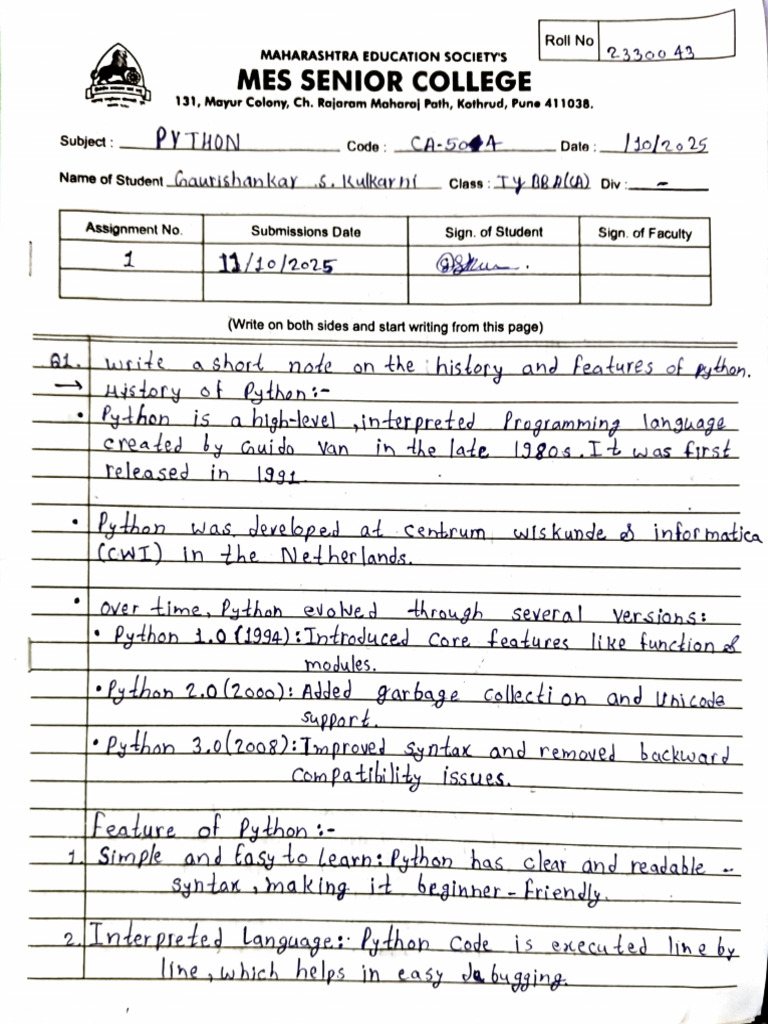 Roll No 2330043
MAHARASHTRA EDUCATION SOCIETY'S
MES SENIOR COLLEGE
131, Mayur Colony, Ch. Rajaram Maharaj Path, Kothrud, Pune 411038.
Subject : PYTHON Code : CA-501A Date : /10/2025
Name of Student Gaurishankar S. Kulkarni Class : TY BBA(CA) Div : -
Assignment No. Submissions Date Sign. of Student Sign. of Faculty
1 11/10/2025
(Write on both sides and start writing from this page)
Q1. Write a short note on the history and features of Python.
→ History of Python:-
• Python is a high-level, interpreted Programming language
created by Guido Van in the late 1980s. It was first
released in 1991
• Python was developed at centrum wiskunde & informatica
(CWI) in the Netherlands.
• over time, Python evolved through several versions:
• Python 1.0 (1994): Introduced core features like function &
modules.
• Python 2.0 (2000): Added garbage collection and Unicode
support.
• Python 3.0 (2008): Improved syntax and removed backward
compatibility issues.
Feature of Python :-
1. Simple and Easy to Learn: Python has clear and readable -
syntax, making it beginner-friendly.
2. Interpreted Language:- Python Code is executed line by
line, which helps in easy debugging.